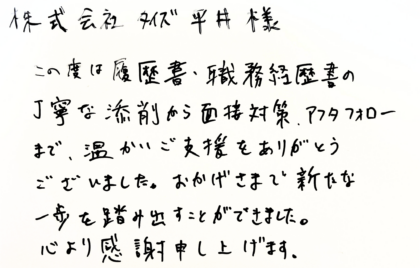 株式会社 タイズ 平井 様
この度は履歴書・職務経歴書の
丁寧な添削から面接対策、アフタフォロー
まで、温かいご支援をありがとう
ございました。おかげさまで新たな
一歩を踏み出すことができました。
心より感謝申し上げます。